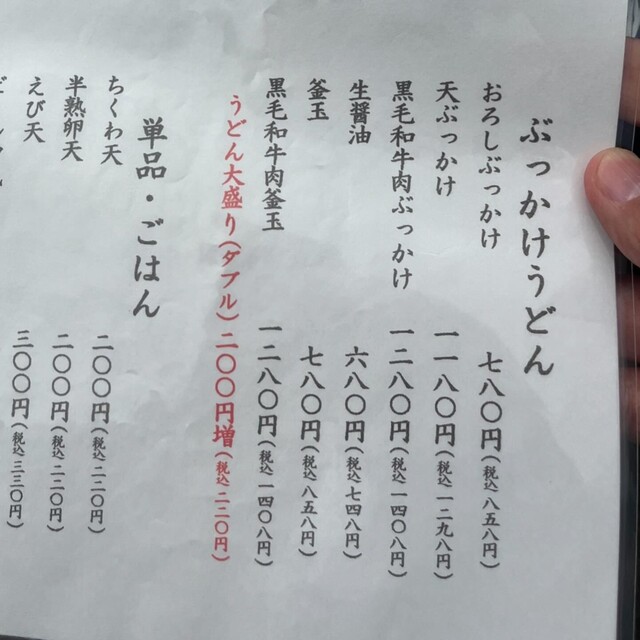 ぶっかけうどん
おろしぶっかけ 七八〇円(税込 八五八円)
天ぶっかけ 一一八〇円(税込 一二九八円)
黒毛和牛肉ぶっかけ 一二八〇円(税込 一四〇八円)
生醤油 六八〇円(税込 七四八円)
釜玉 七八〇円(税込 八五八円)
黒毛和牛肉釜玉 一二八〇円(税込 一四〇八円)
うどん大盛り(ダブル)二〇〇円増(税込 二二〇円)
単品・ごはん
ちくわ天 二〇〇円(税込 二二〇円)
半熟卵天 二〇〇円(税込 二二〇円)
えび天 三〇〇円(税込 三三〇円)